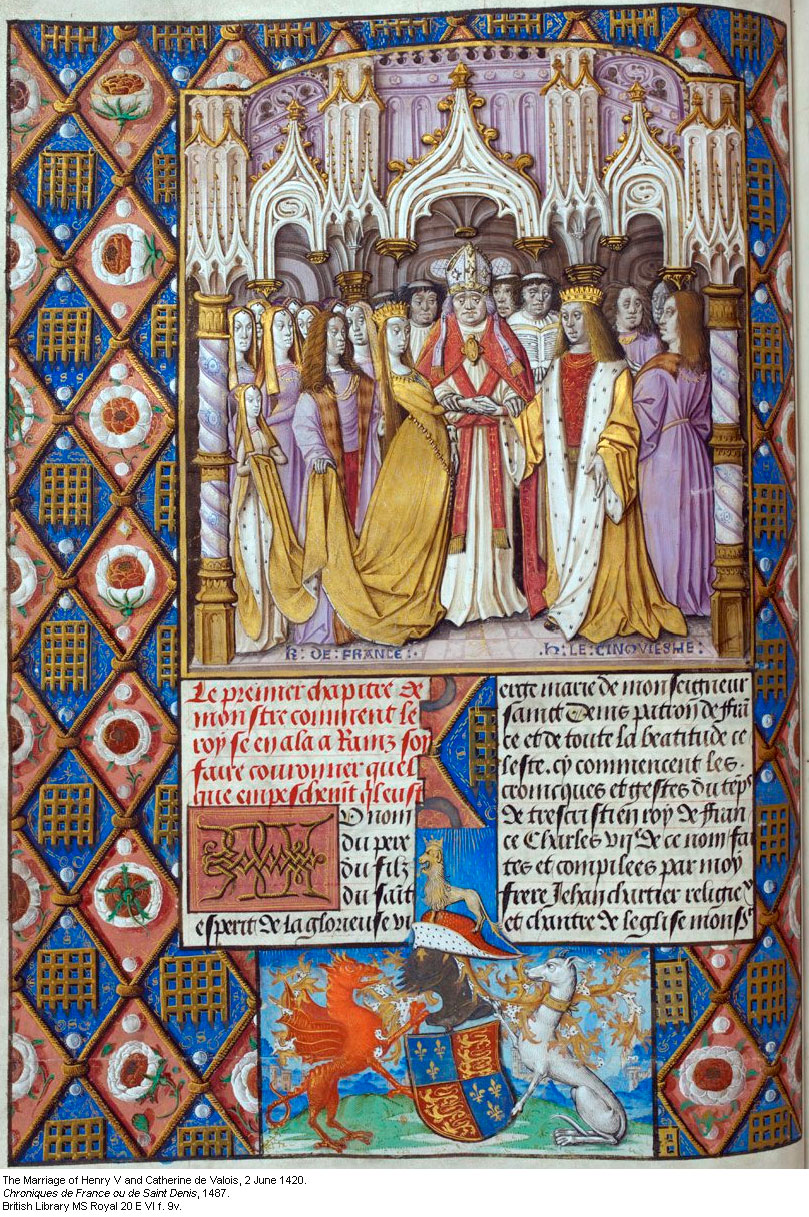 K: DE: FRANCE:
h: LE: CINQVIESME:
Le premier chapitre de
monstre comment le
roy se en ala a Rainz soy
faire couronner quel
que empeschemt qͥl eust
U nom
du pere
du filz
du saīt
esperit de la glorieuse vi
erge marie de monseigneur
sainct Denis patron de frā
ce et de toute la beatitude ce
leste. cy commencent les
cronicques et gestes du tēps
de trescristien roy de fran
ce Charles viie de ce nom fai
tes et compilees par moy
frere Jehan chartier religieux
et chantre de leglise monsr
The Marriage of Henry V and Catherine de Valois, 2 June 1420.
Chroniques de France ou de Saint Denis, 1487.
British Library MS Royal 20 E VI f. 9v.